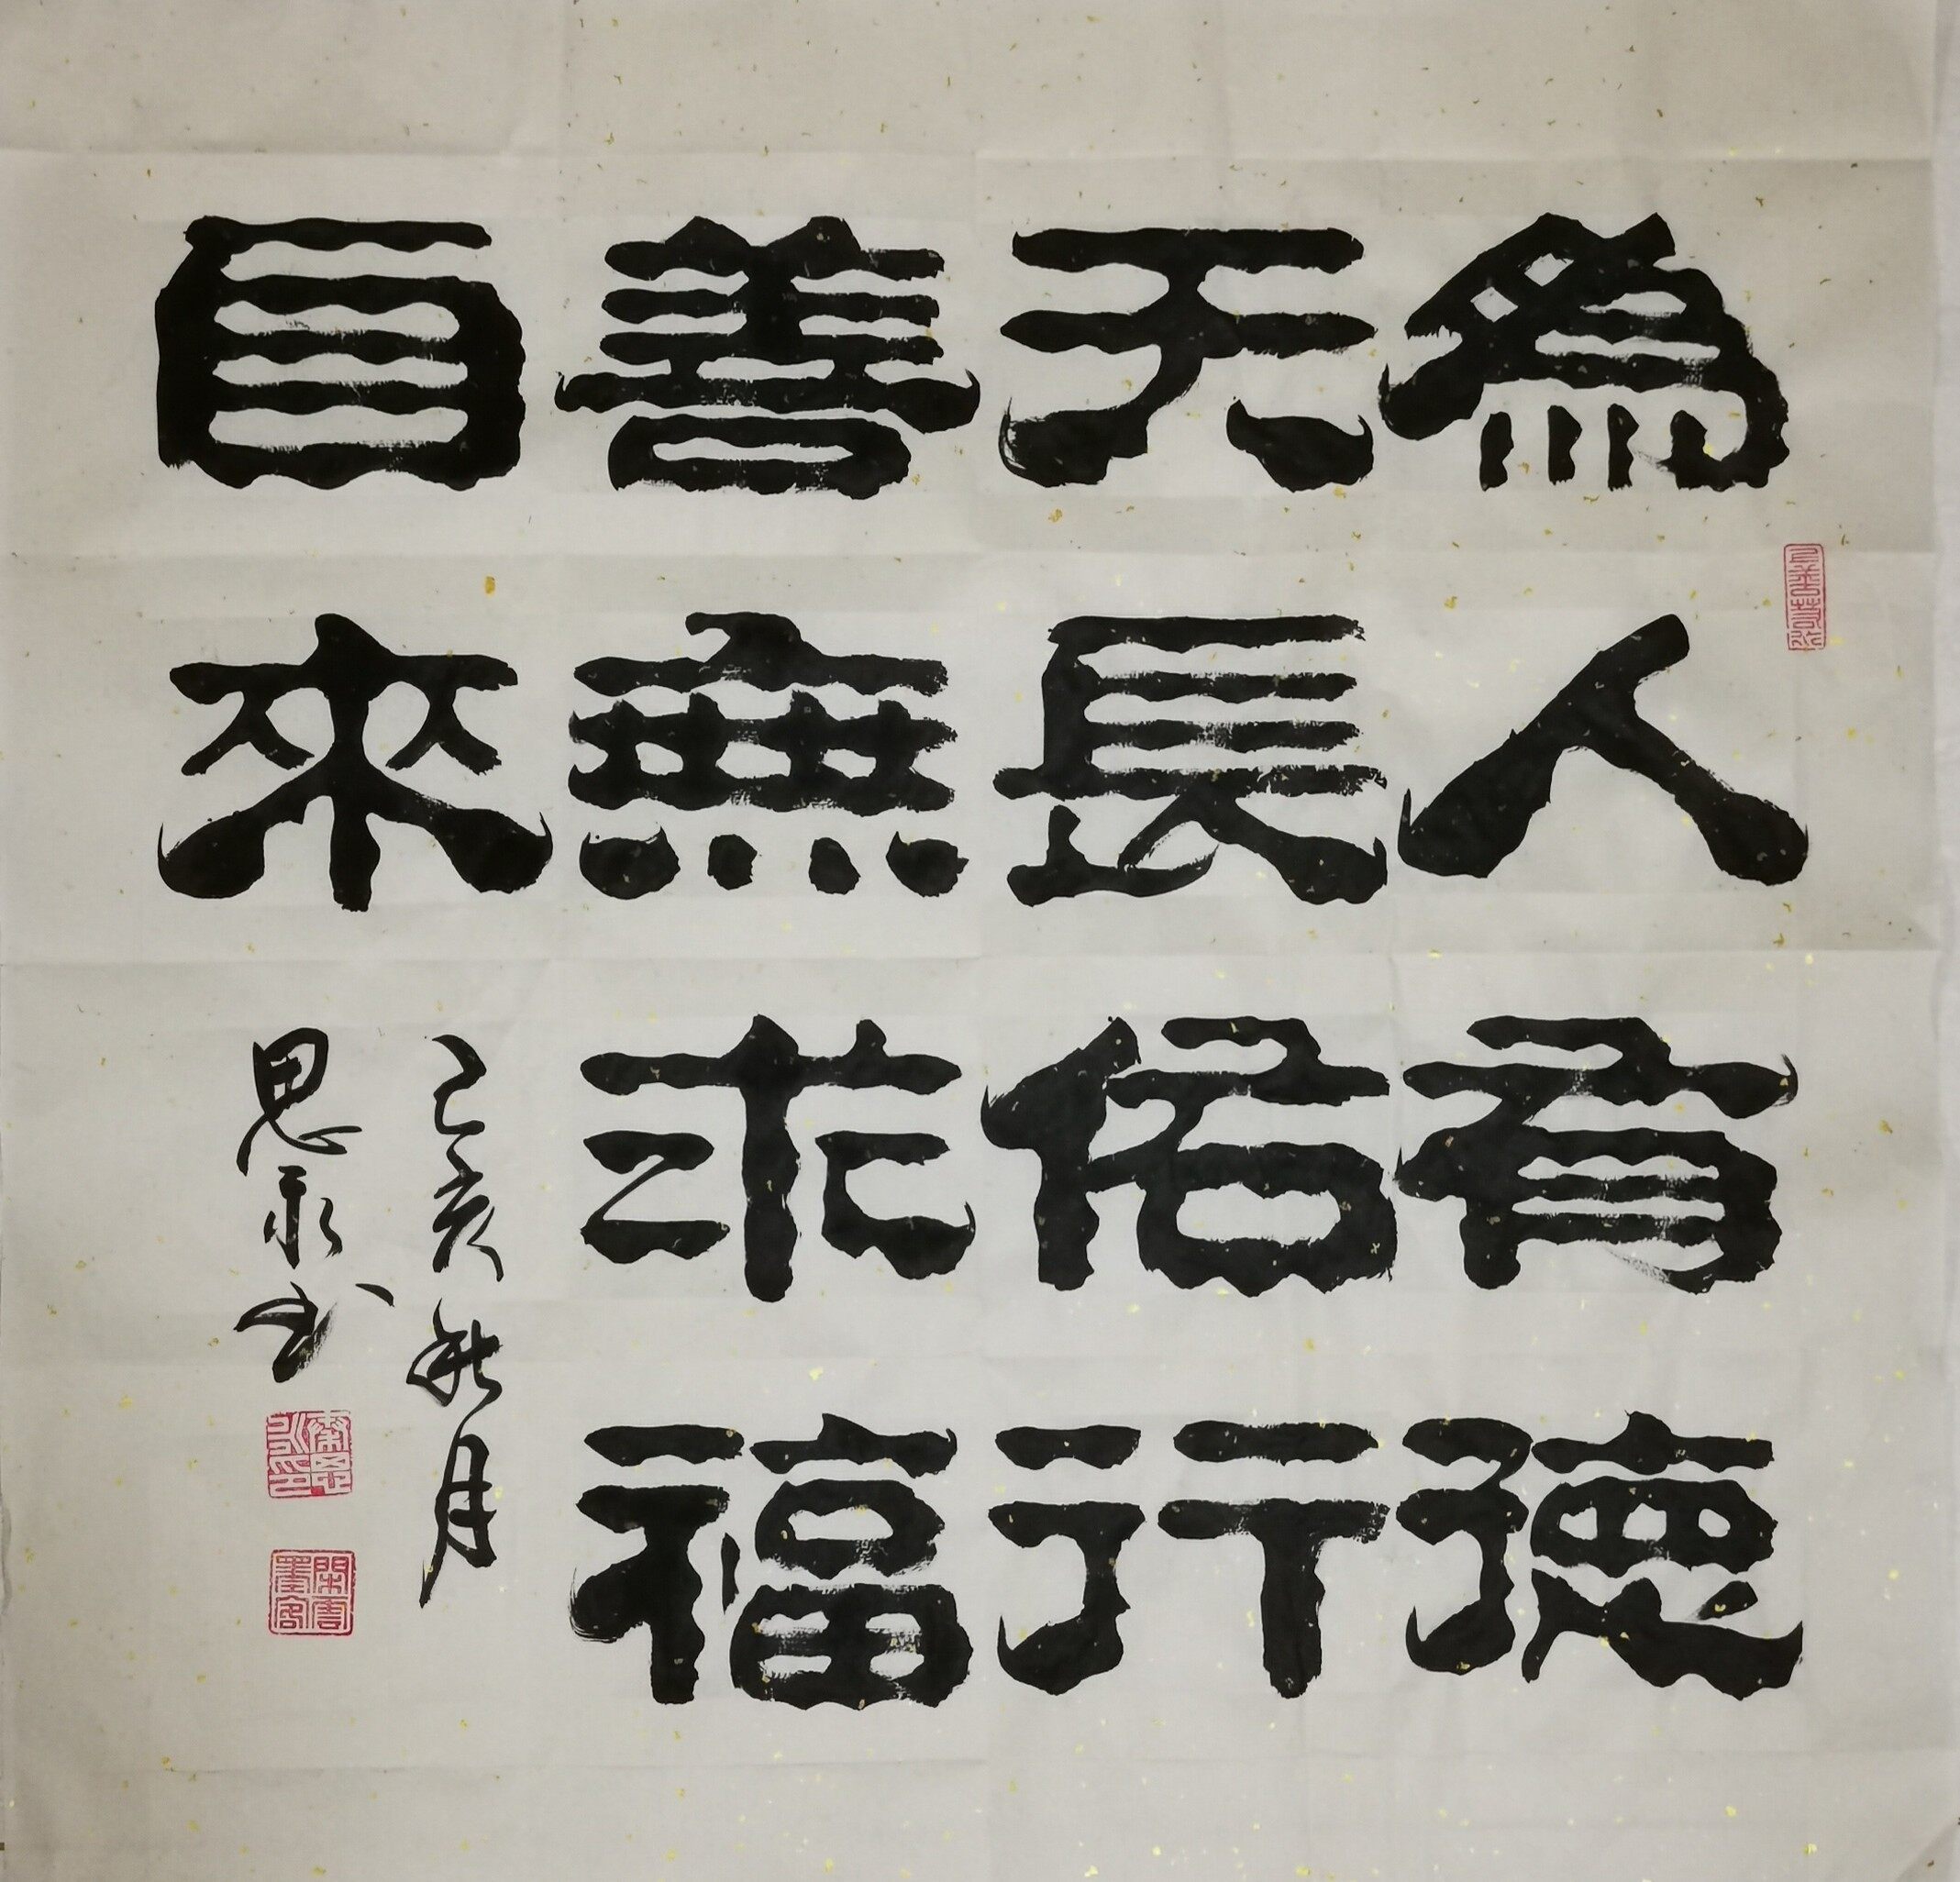 為人有德
天長佑行
善無求福
自來
己亥秋月
思永书